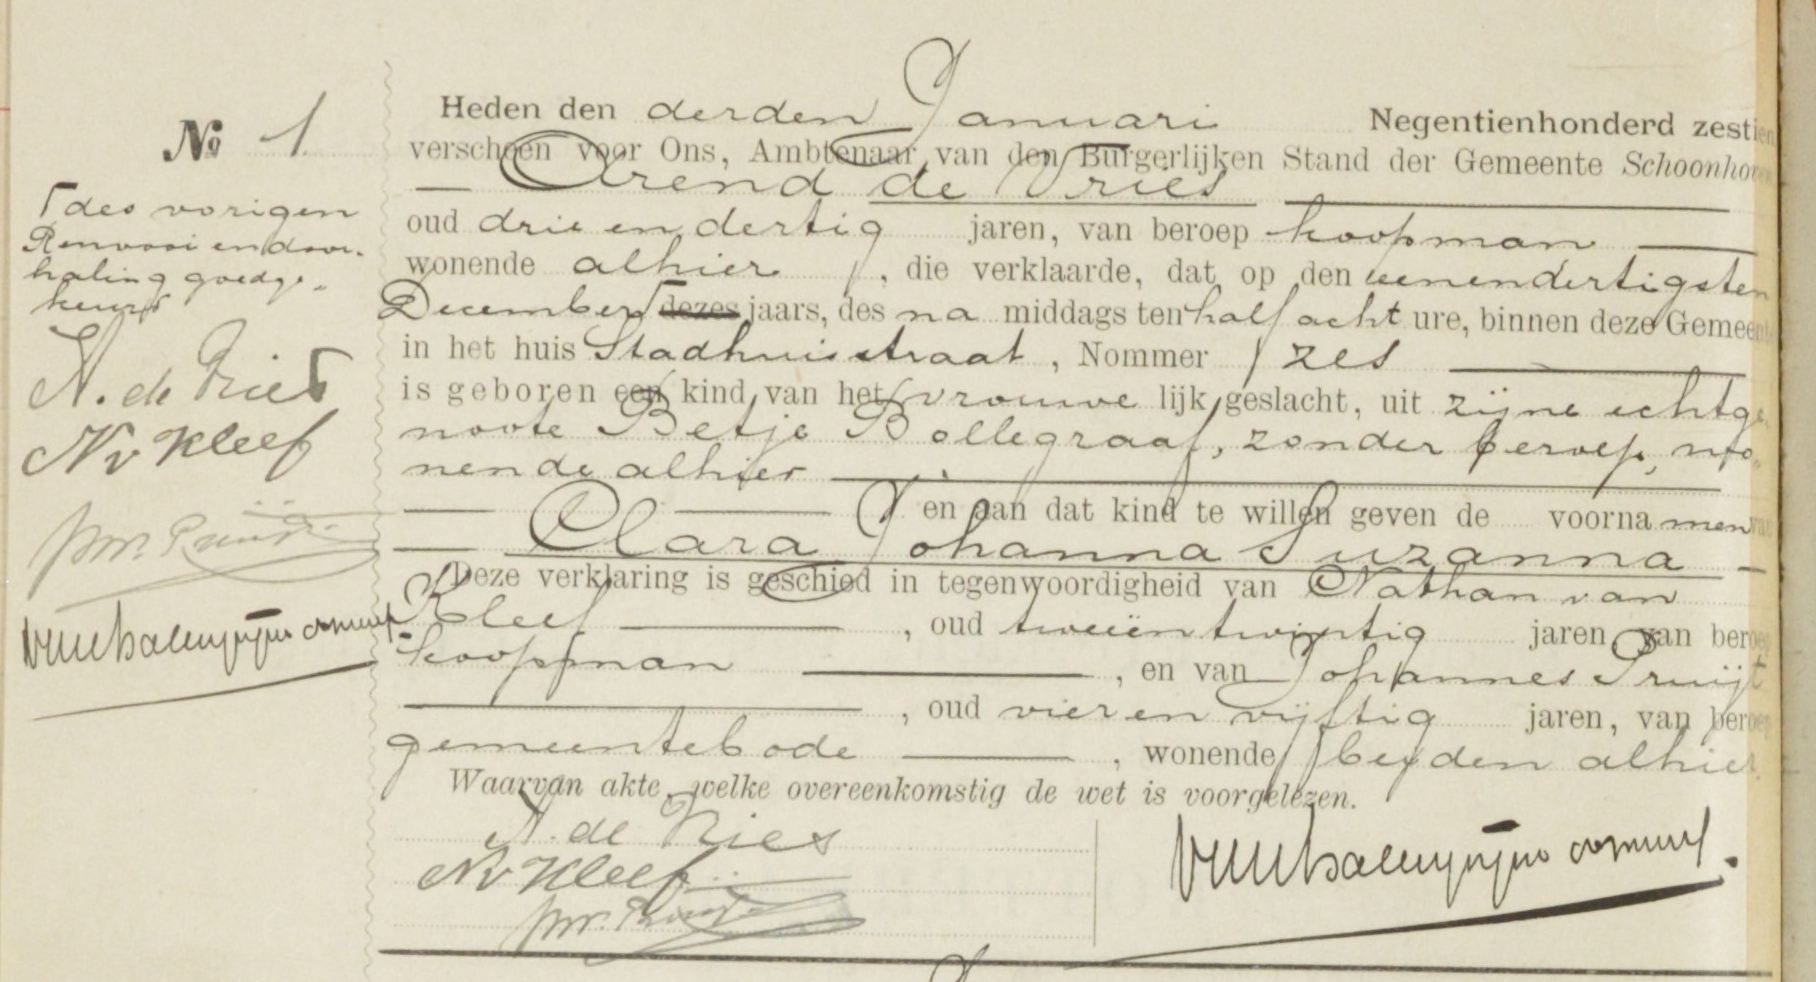 № 1.
Heden den derden Januari Negentienhonderd zestien
verscheen voor Ons, Ambtenaar van den Burgerlijken Stand der Gemeente Schoonhoven
Arend de Vries
oud drie en dertig jaren, van beroep koopman
wonende alhier, die verklaarde, dat op den eenendertigsten
December ⌈ dezes jaars, des na middags ten half acht ure, binnen deze Gemeente
in het huis Stadhuisstraat, Nommer zes
is geboren een kind van het vrouwe lijk geslacht, uit zijne echtge-
noote Betje Bollegraaf, zonder beroep, wo-
nende alhier
en aan dat kind te willen geven de voorna men van
Clara Johanna Suzanna
Deze verklaring is geschied in tegenwoordigheid van Nathan van
Kleef, oud tweeëntwintig jaren van beroep
koopman, en van Johannes Pruijt
, oud vier en vijftig jaren, van beroep
gemeentebode, wonende beyden alhier.
Waarvan akte, welke overeenkomstig de wet is voorgelezen.
A. de Vries
N v Kleef
⌈ des vorigen
Renvooi en door-
haling goedge-
keurd
A. de Vries
N v Kleef